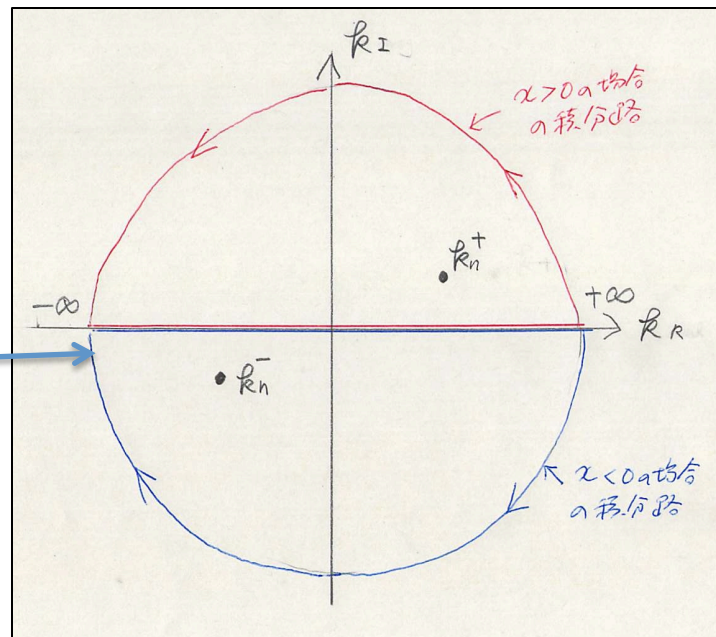 k I
x>0の場合
の積分路
kn+
-∞
+∞
k R
kn-
x<0の場合
の積分路